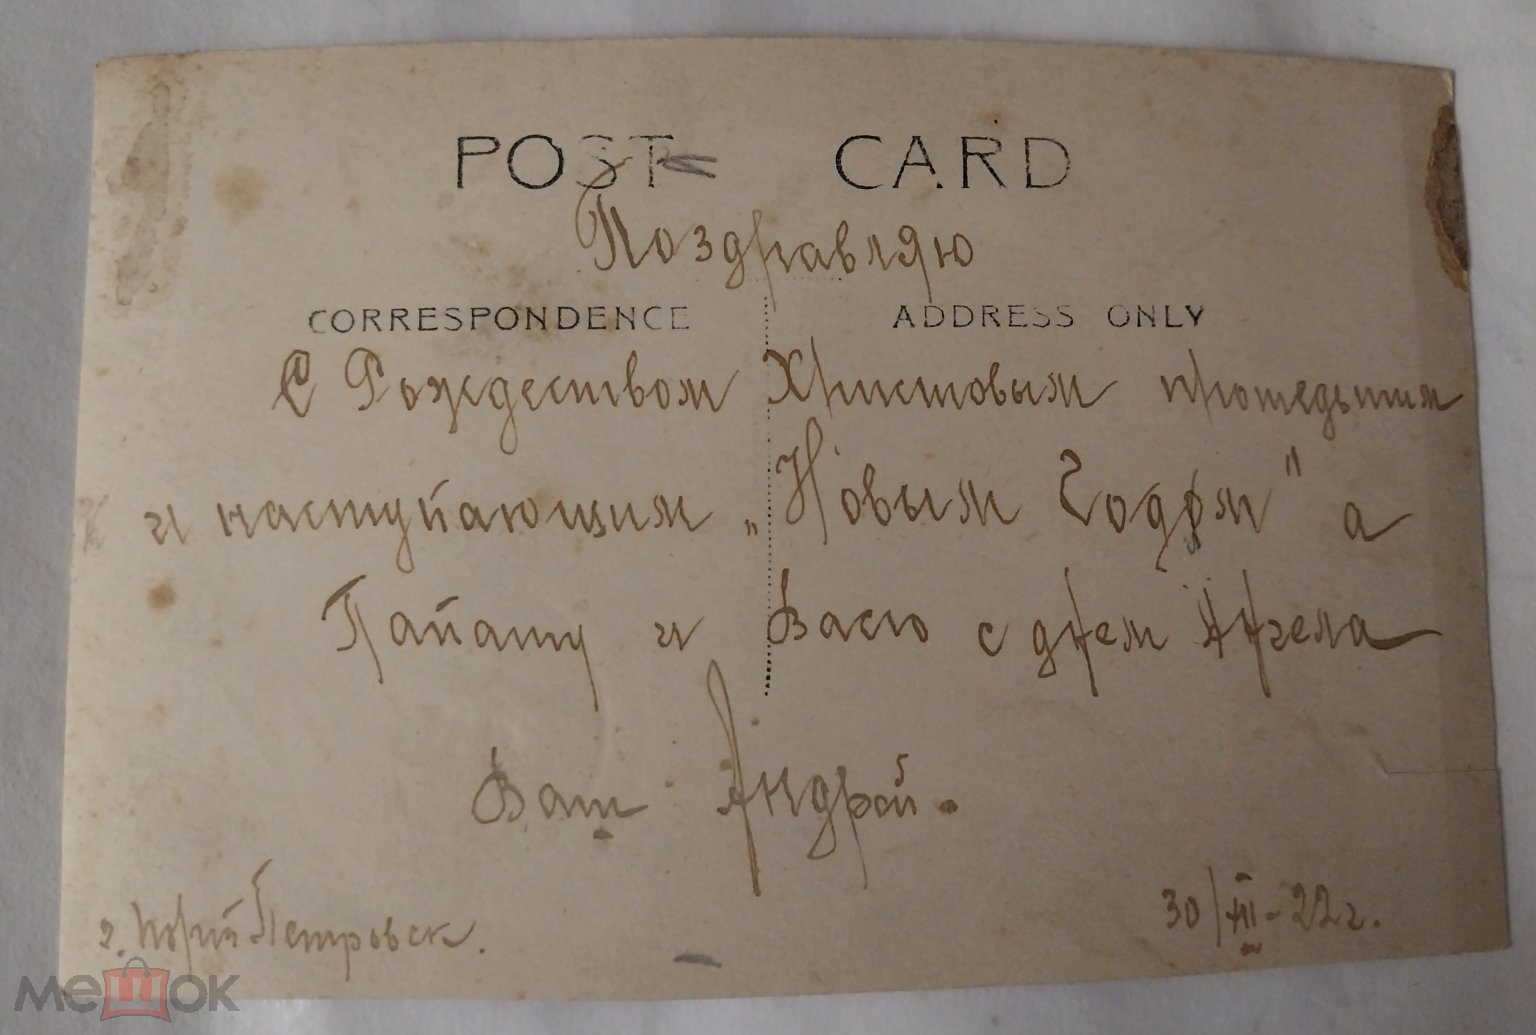 POST CARD
Поздравляю
CORRESPONDENCE ADDRESS ONLY
С Рождеством Христовым прошедшим
и наступающим „Новым Годом" а
Папашу и Васю с днем Ангела
Ваш Андрей.
г. Петровск. 30/XII-22г.
мешок